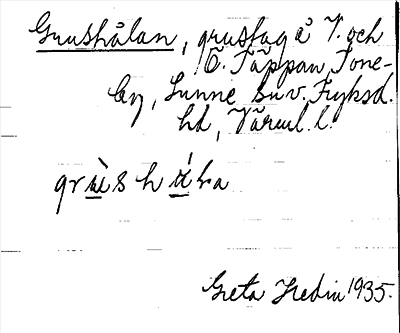 Grushålan, grustag å V. och
Ö. Täppan, Tone-
by, Sunne sn v. Fryksd.
hd, Värml. l.
Greta Hedin 1935.